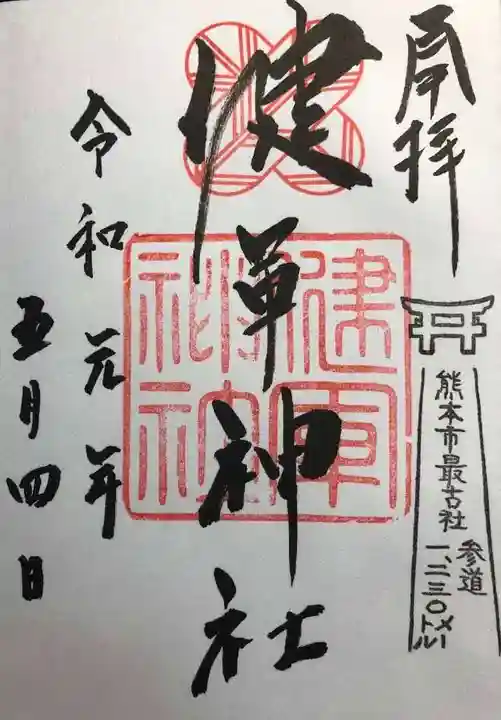 奉拝
健軍神社
健軍神社
令和元年
五月四日
熊本市最古社
参道
一、二三〇メートル